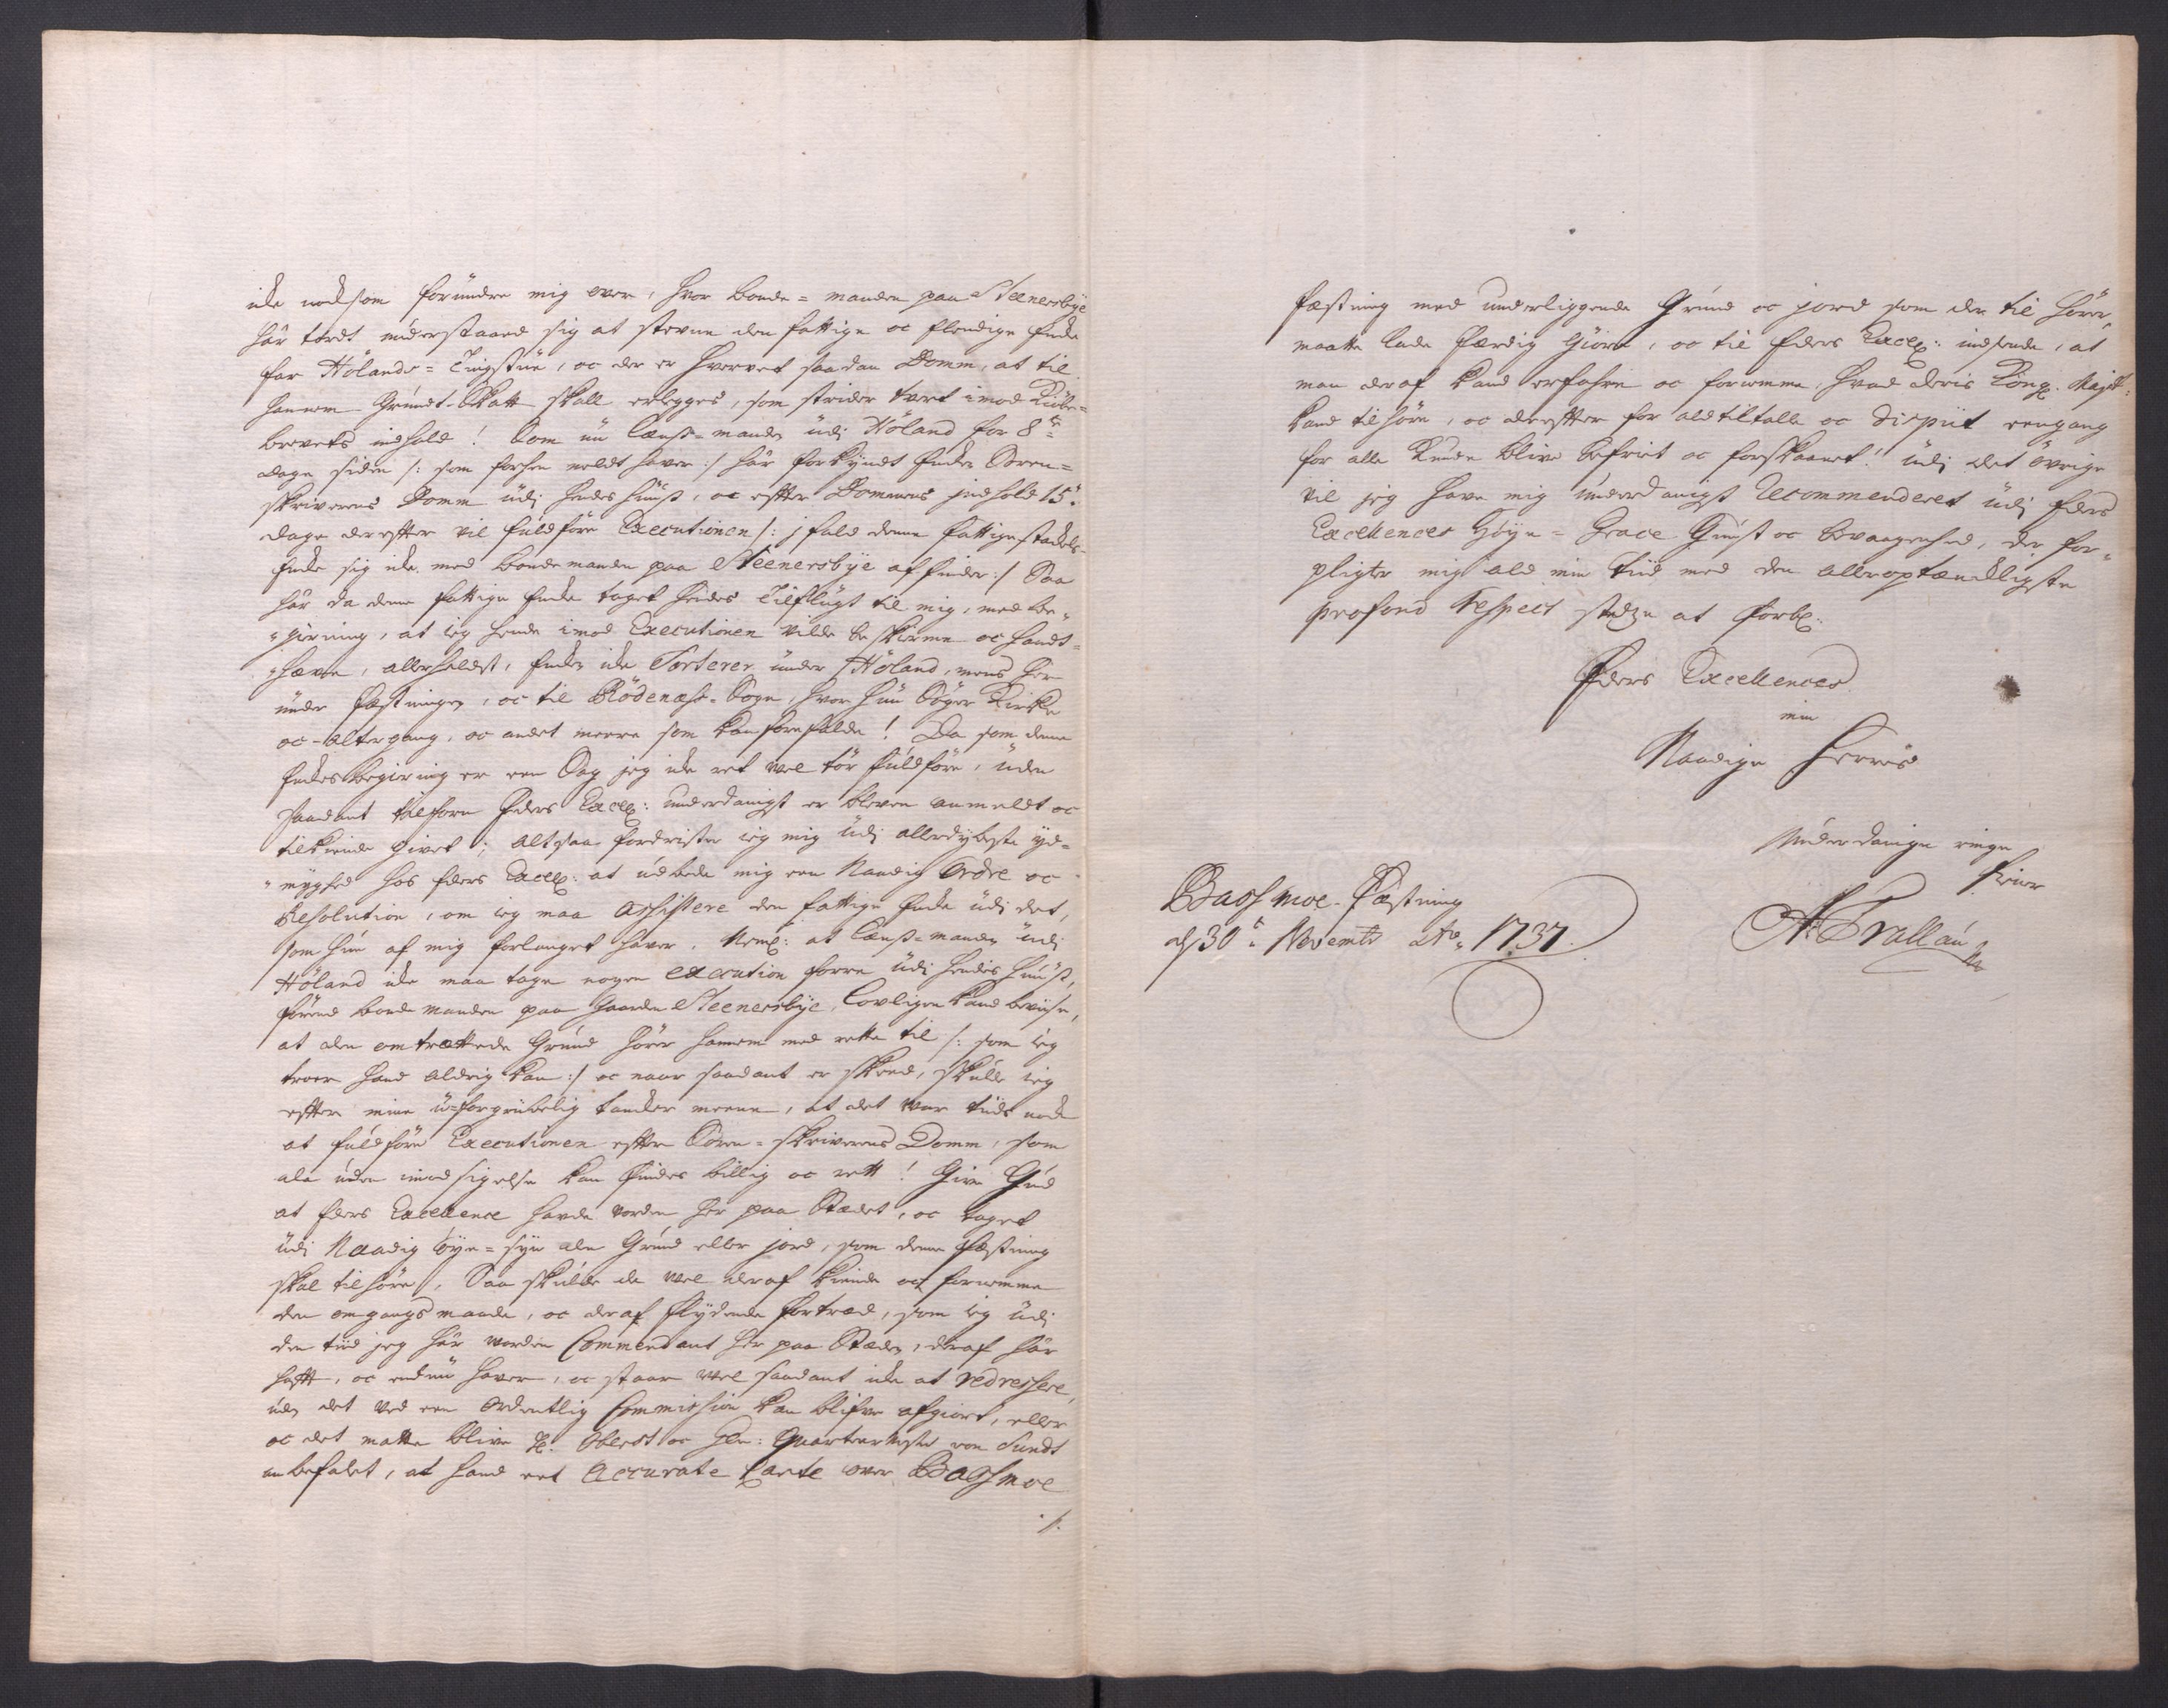 icke nocksom forundre mig over, hvor bonde-manden paa Steenersbÿe
har tordt understaaed sig at stevne den fattige oc Elendige Encke
for Hölands-Tingstue, oc der er hvervet saadan Domm, at til
hannem Grundt-Skatt skall erlegges, som strider tvert imod Kiöbe-
brevets indhold! Som nu Lenss-manden udj Höland for 8te
dage siden /: som forhen meldt haver :/ har forkyndt Enken Soren-
skriverens Domm udj hendes Huuss, oc effter Dommens jndhold 15.
dage dereffter vil fuldföre Executionen /: j fald denne fattige stackels
Encke sig icke med bondemanden paa Steenersbÿe affinder :/ Saa
har da denne fattige Encke taget hendes Tilflugt til mig, med be-
giering, at ieg hende imod Executionen vilde beskierme oc handt-
hæve, allerhelst, Encken icke Sorterer under Höland, mens her
under Fæstningen, oc til Rödenæss-Sogn, hvor hun Söger Kirke
oc-altergang, oc andet meere som kan forefalde! Da som denne
Enckes begiering er een Sag jeg icke ret vel tör fuldföre, uden
saadant tilforn Eders Excell: underdanigst er bleven anmeldt oc
tilkiende givet; altsaa fordrister ieg mig udj allerdybeste ÿd-
mÿghed hos Eders Excell: at udbede mig een Naadig ordre oc
Resolution, om ieg maa assistere den fattige Encke udj det,
som hun af mig forlanget haver. Neml: at Lenss-manden udj
Höland icke maa tage nogen execution forre udj hendes Huuss,
förend bonde manden paa Gaarden Steenersbÿe, Lovligen kand beviise,
at den omtrettede Grund hörer hannem med rette til /: som ieg
troer hand aldrig kan :/ oc naar saadant er skeed, skulle ieg
effter mine u-forgribelig tancker meene, at det var tiids nock
at fuldföre Executionen effter Soren-skriverens Domm, som
da uden imodsigelse kan findes billig oc rett! Give Gud
at Eders Excellence havde vorden her paa Stædet, oc taget
udj Naadig Öye-syn den Grund eller jord, som denne Fæstning
skal tilhöre, Saa skulde de vel deraf kiende oc fornemme
den omgangs maade, oc deraf flÿdende fortred, som ieg udj
den tiid jeg har vorden Commendant her paa Stæden, deraf har
hafft, oc endnu haver, oc staar vel saadant icke at redressere,
uden det ved een ordentlig Commission kan blifve afgiort, eller
oc det matte blive Hr. Oberst oc Gen: Quarteermester von Sundt
anbefalet, at hand eet Accurate Carte over Bassmoe
./.
Fæstning med underliggende Grund oc jord som der til hörer,
maatte lade færdig giöre, oc til Eders Excell: indsende, at
man deraf kand erfahre oc fornemme, hvad deris Kongl. Mayst:
kand tilhöre, oc dereffter for ald tiltalle oc Disput eengang
for alle kunde blive befriet oc forskaanet! udj det övrige
vil jeg have mig underdanigst Recommenderet udj Eders
Excellences Höye-Grace Gunst oc bevaagenhed, der for-
pligter mig ald min tiid med den alleroptænckligste
profond Respect stedze at forbl:
Eders Excellences
min
Naadige Herres
Bassmoe-Fæstning
d 30te Novembr Ao. 1737.
Underdanige ringe
tiener
A: Trallau